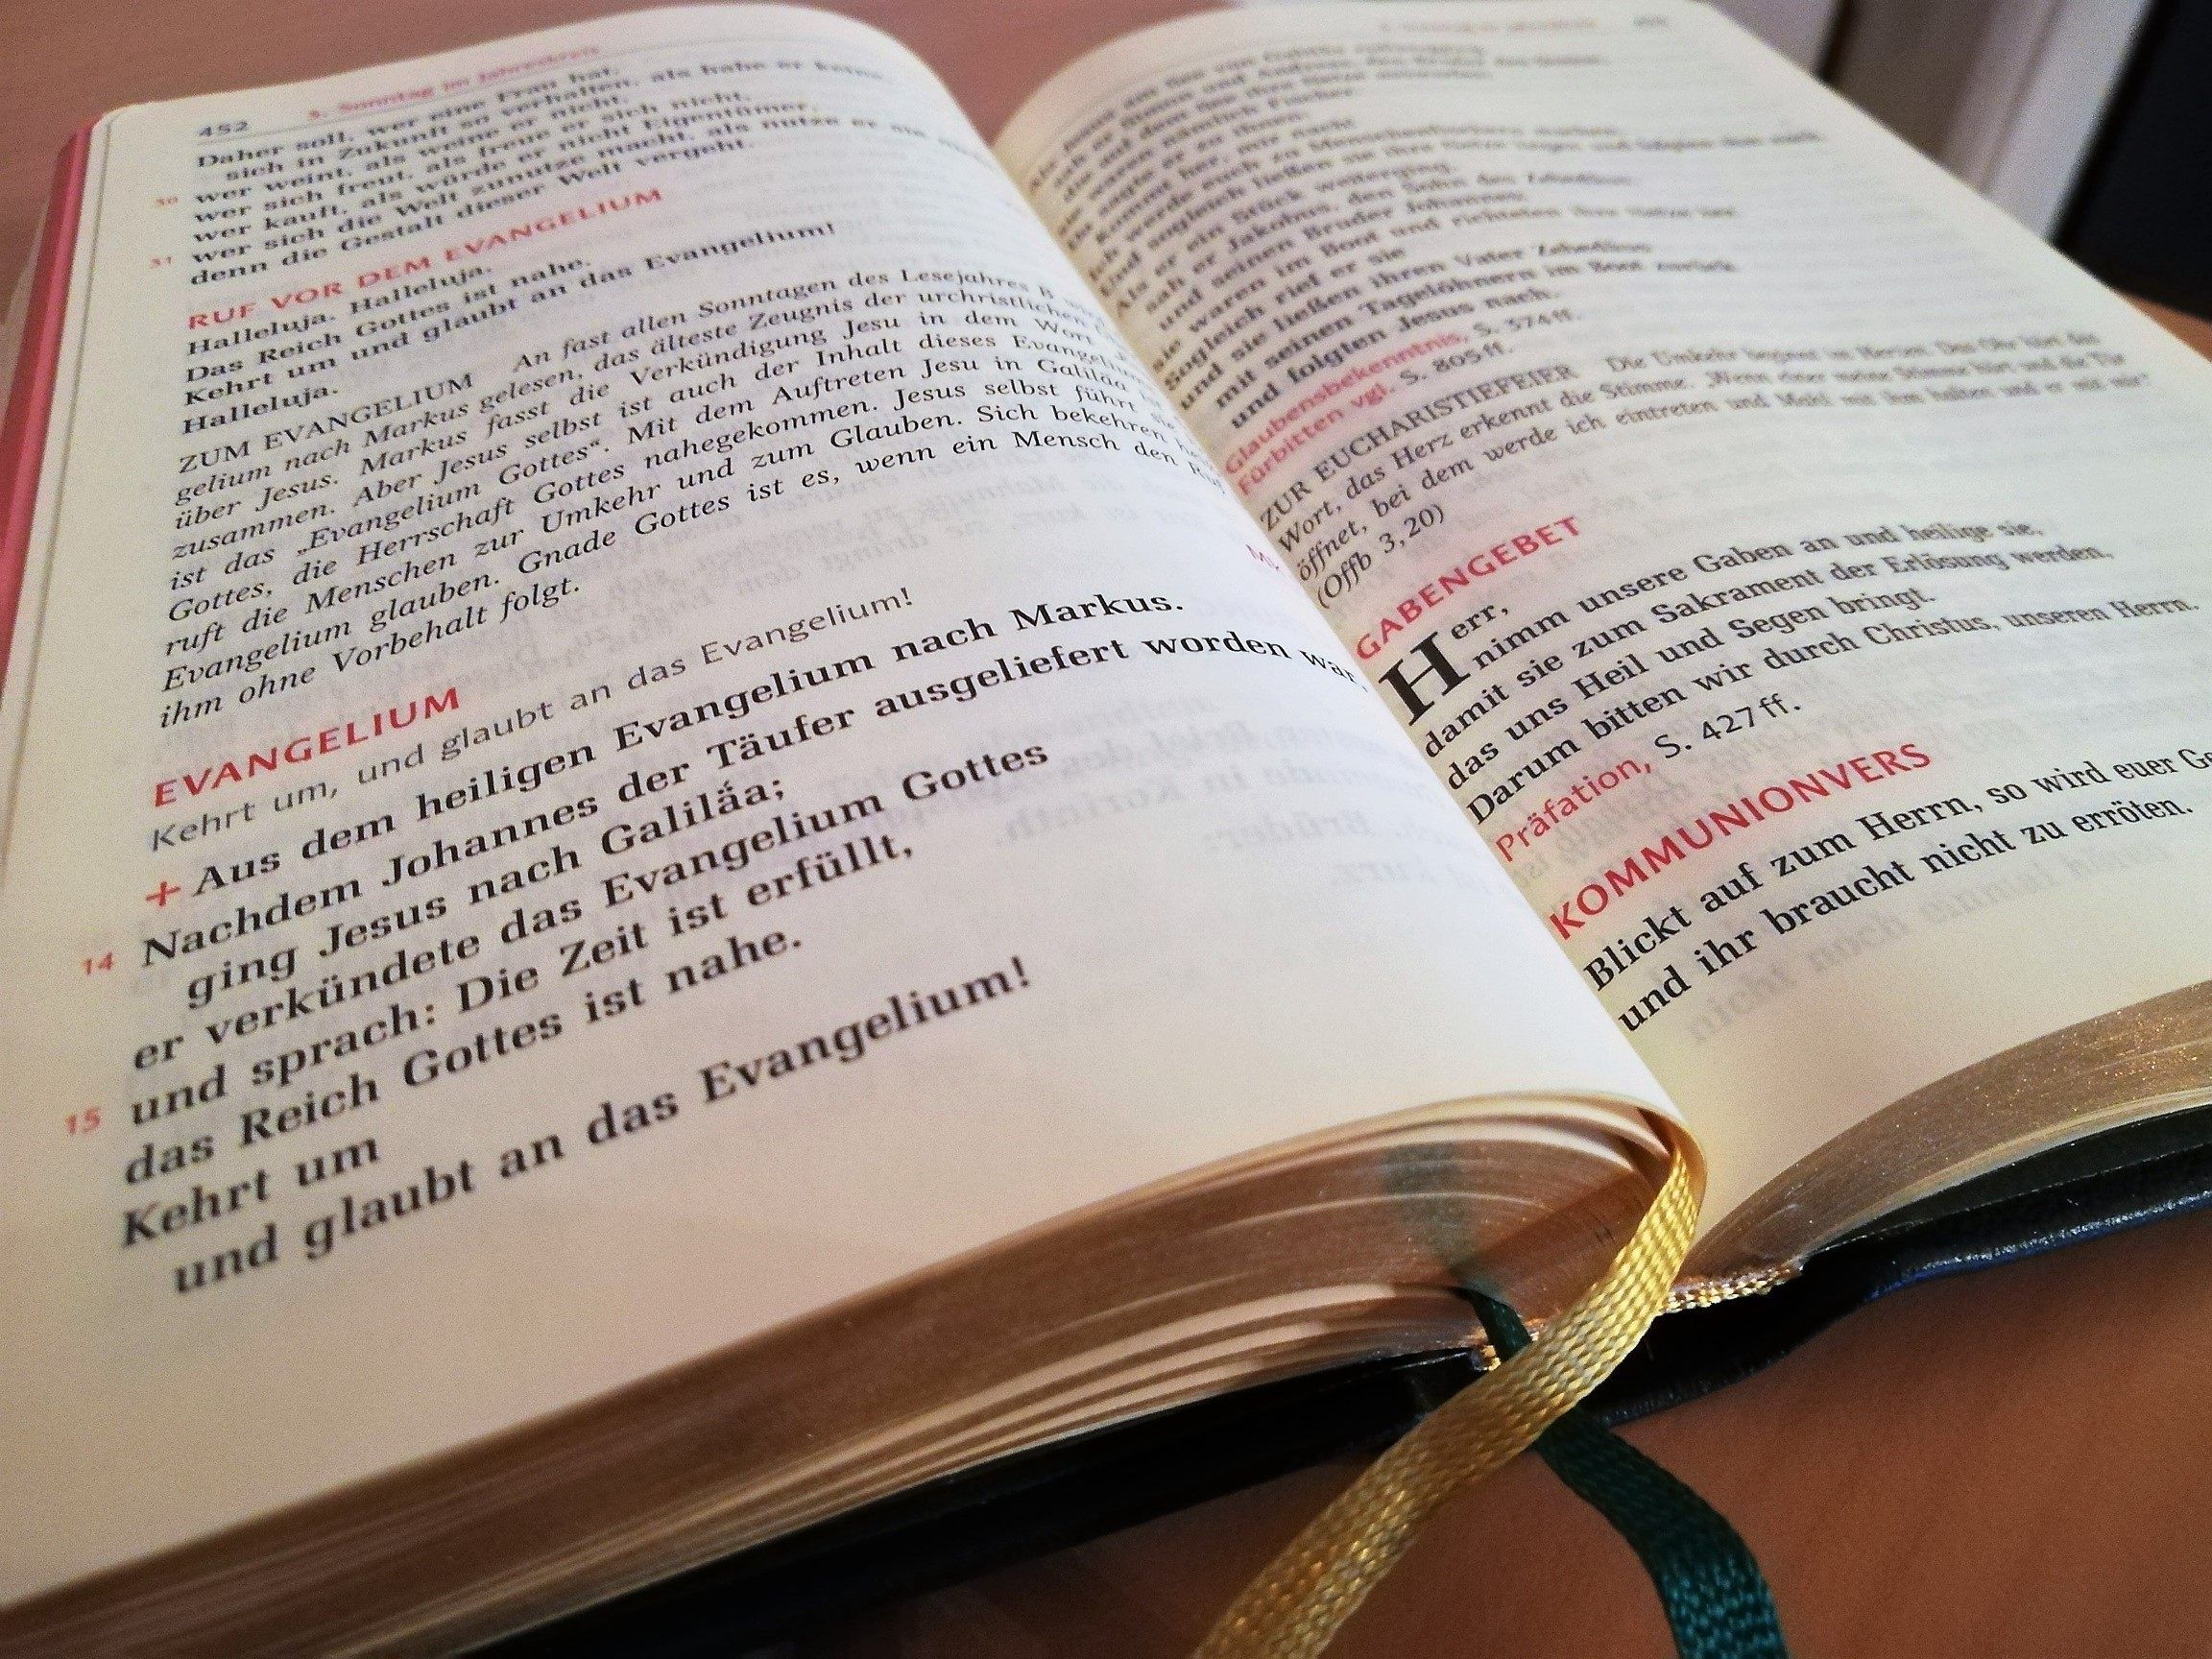 452
3. Sonntag im Jahreskreis
Daher soll, wer eine Frau hat,
sich in Zukunft so verhalten, als habe er keine,
30 wer weint, als weine er nicht,
wer sich freut, als freue er sich nicht,
wer kauft, als würde er nicht Eigentümer,
31 wer sich die Welt zunutze macht, als nutze er sie
denn die Gestalt dieser Welt vergeht.
RUF VOR DEM EVANGELIUM
Halleluja. Halleluja.
Das Reich Gottes ist nahe.
Kehrt um und glaubt an das Evangelium!
Halleluja.
ZUM EVANGELIUM An fast allen Sonntagen des Lesejahres B
gelium nach Markus gelesen, das älteste Zeugnis der urchristlichen
über Jesus. Markus fasst die Verkündigung Jesu in dem Wort
zusammen. Aber Jesus selbst ist auch der Inhalt dieses
ist das „Evangelium Gottes“. Mit dem Auftreten Jesu in Galiläa
Gottes, die Herrschaft Gottes nahegekommen. Jesus selbst führt
ruft die Menschen zur Umkehr und zum Glauben. Sich bekehren
Evangelium glauben. Gnade Gottes ist es, wenn ein Mensch den Ruf
ihm ohne Vorbehalt folgt.
EVANGELIUM
Kehrt um, und glaubt an das Evangelium!
+ Aus dem heiligen Evangelium nach Markus.
14 Nachdem Johannes der Täufer ausgeliefert worden war,
ging Jesus nach Galiläa;
er verkündete das Evangelium Gottes
15 und sprach: Die Zeit ist erfüllt,
das Reich Gottes ist nahe.
Kehrt um
und glaubt an das Evangelium!
wanen nämlich Fischer.
sagte er zu ihnen:
Kommt her, mir nach!
werde euch zu Menschenfischern machen.
Und sogleich ließen sie ihre Netze liegen und folgten ihm nach.
Als er ein Stück weiterging,
sah er Jakobus, den Sohn des Zebedäus,
und seinen Bruder Johannes;
sie waren im Boot und richteten ihre Netze her.
Sogleich rief er sie
und sie ließen ihren Vater Zebedäus
mit seinen Tagelöhnern im Boot zurück
und folgten Jesus nach.
Glaubensbekenntnis, S. 374 ff.
Fürbitten vgl. S. 805 ff.
ZUR EUCHARISTIEFEIER Die Umkehr beginnt im Herzen. Das Ohr hört das
Wort, das Herz erkennt die Stimme. „Wenn einer meine Stimme hört und die Tür
öffnet, bei dem werde ich eintreten und Mahl mit ihm halten und er mit mir“
(Offb 3, 20)
GABENGEBET
Herr,
nimm unsere Gaben an und heilige sie,
damit sie zum Sakrament der Erlösung werden,
das uns Heil und Segen bringt.
Darum bitten wir durch Christus, unseren Herrn.
Präfation, S. 427 ff.
KOMMUNIONVERS
Blickt auf zum Herrn, so wird euer
und ihr braucht nicht zu erröten.